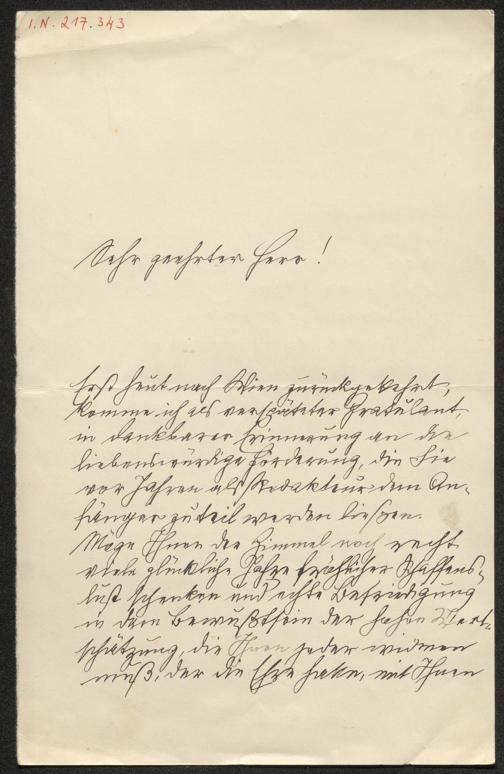 I.N. 217.343
Sehr geehrter Herr!
Erst heut nach Wien zurückgekehrt,
komme ich als verspäteter Gratulant
in dankbarer Erinnerung an die
liebenswürdige Förderung, die Sie
vor Jahren als Redakteur dem An-
fänger zuteil werden ließen.
Möge Ihnen der Himmel noch recht
viele glückliche Jahre fröhlicher Schaffens-
lust schenken und echte Befriedigung
in dem Bewußtsein der hohen Wert-
schätzung, die Ihnen jeder widmen
muß, der die Ehre hatte, mit Ihnen